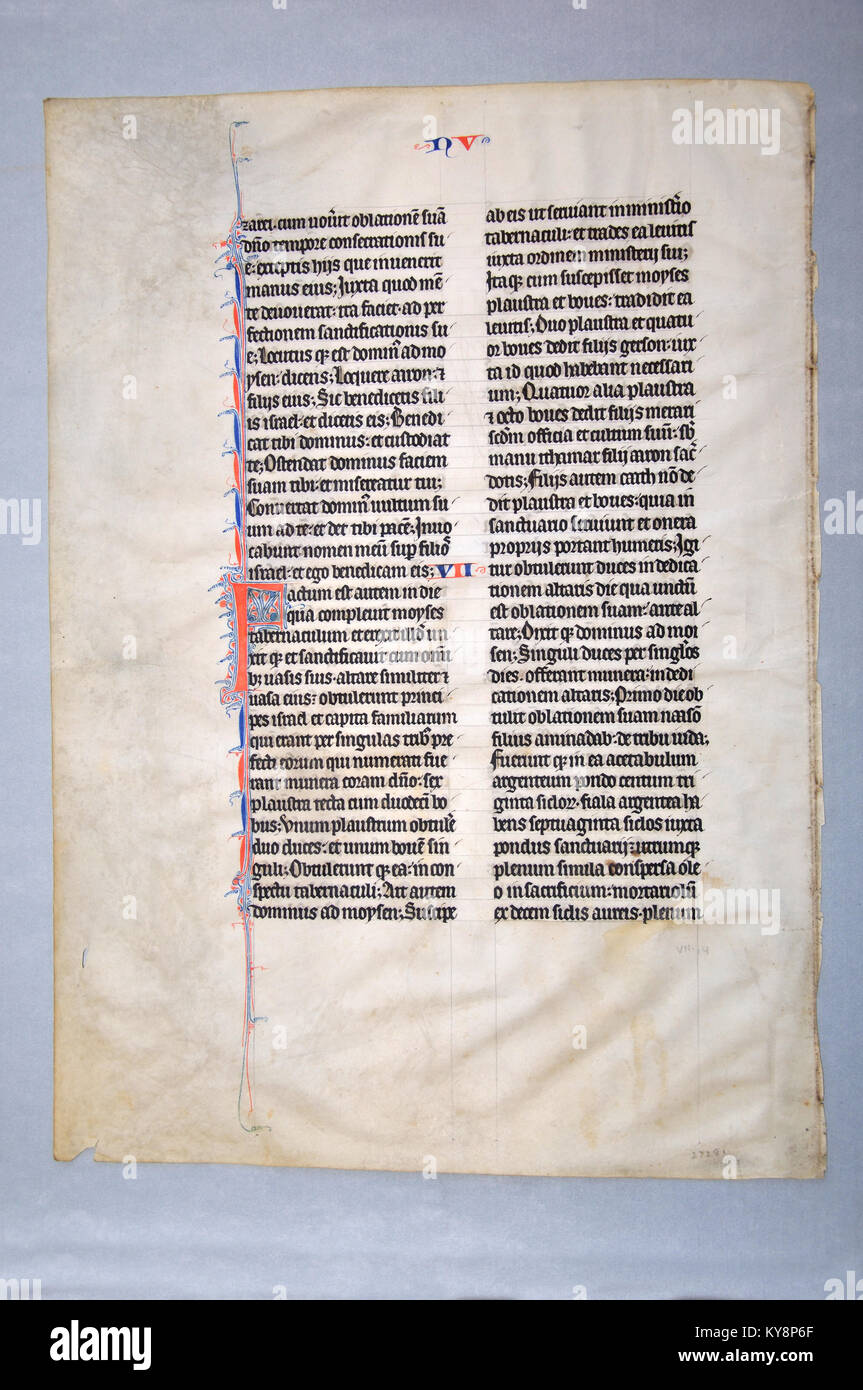 UA
zarei. cum voverit oblationē suā
dn̄o tempore consecrationis su
e: exceptis hijs que invenerit
manus eius; Juxta quod mē
te devoverat: ita faciet ad per
fectionem sanctificationis su
e; Locutus qȝ est domin9 ad mo
ysen dicens; Loquere aaron ⁊
filijs eius; Sic benedicetis fili
is israel: et dicetis eis; Benedi
cat tibi dominus: et custodiat
te; Ostendat dominus faciem
suam tibi: et misereatur tui;
Convertat domin9 vultum su
um ad te: et det tibi pacē; Invo
cabunt nomen meū sup filios
israel: et ego benedicam eis; VII
Factum est autem in die
qua complevit moyses
tabernaculum et erexit illud un
xit qȝ et sanctificavit cum omni
bȝ vasis suis. altare similiter ⁊
vasa eius: obtulerunt princi
pes israel et capita familiarum
qui erant per singulas trib9 pre
fecti eorum qui numerati fue
rant munera coram dn̄o: sex
plaustra tecta cum duodecī bo
bus; Unum plaustrum obtulē
duo duces: et unum bovē sin
guli; Obtulerunt qȝ ea: in con
spectu tabernaculi; Ait autem
dominus ad moysen; Suscipe
ab eis ut serviant in ministerio
tabernaculi: et trades ea levitis
iuxta ordinem ministerij sui;
Itaqȝ cum suscepisset moyses
plaustra et boves: tradidit ea
levitis; Duo plaustra et quatu
or boves dedit filijs gerson: iux
ta id quod habebant necessari
um; Quatuor alia plaustra
⁊ octo boves dedit filijs merari
scdm officia et cultum suum: sb
manu ithamar filij aaron sac
dotis; Filijs autem caath nō de
dit plaustra et boves: quia in
sanctuario serviunt et onera
proprijs portant humeris; Igi
tur obtulerunt duces in dedica
tionem altaris die qua unctū
est oblationem suam: ante al
tare; Dixit qȝ dominus ad moi
sen; Singuli duces per singlos
dies. offerant munera: in dedi
cationem altaris; Primo die ob
tulit oblationem suam naason
filius aminadab: de tribu iuda;
Fuerunt qȝ in ea acetabulum
argenteum pondo centum tri
ginta siclor. fiala argentea ha
bens septuaginta siclos iuxta
pondus sanctuarij: utrumqȝ
plenum simila conspersa ole
o in sacrificium: mortariolū
ex decem siclis aureis. plenum
VII-14
alamy
Image ID: KY8P6F
www.alamy.com